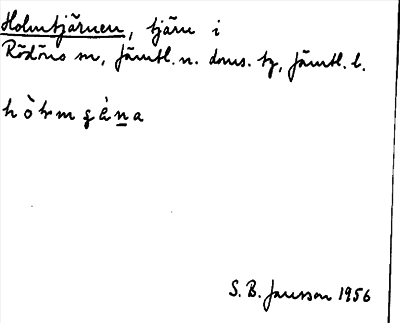 Holmtjärnen, tjärn i
Rödöns sn, Jämtl. n. doms. tg, Jämtl. l.
S. B. Jansson 1956